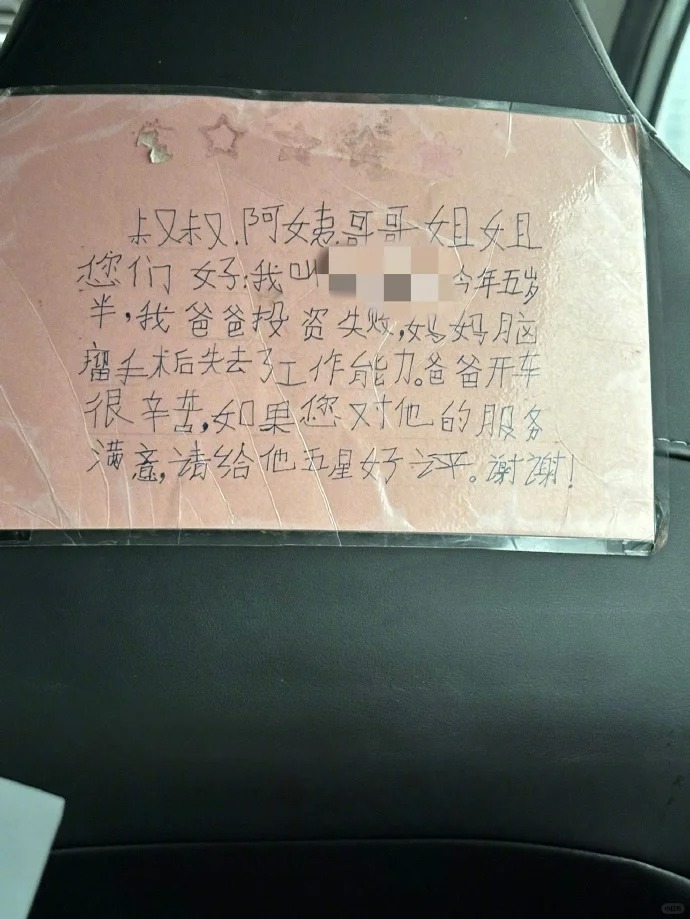 叔叔.阿姨.哥哥.姐姐
您们 好:我叫 今年五岁
半,我爸爸投资失败,妈妈脑
瘤手术后失去了工作能力。爸爸开车
很辛苦,如果您对他的服务
满意,请给他五星好评。谢谢!